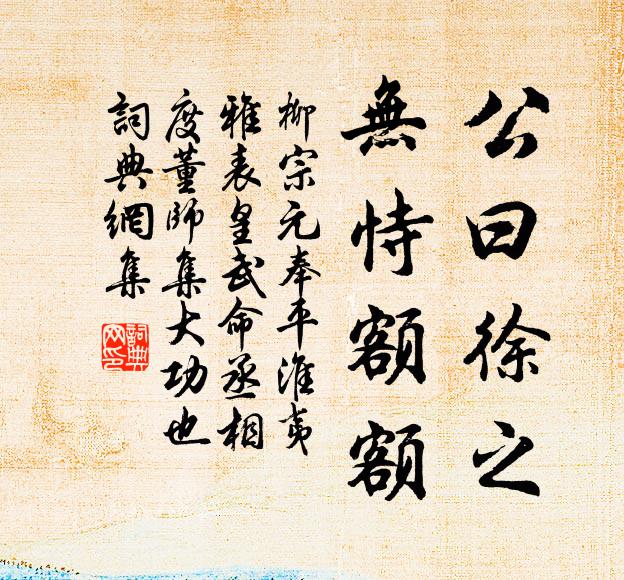 公曰徐之
無恃額額
柳宗元奉平淮夷
雅表皇武命丞相
度董師集大功也
詞典網集
詞典網印